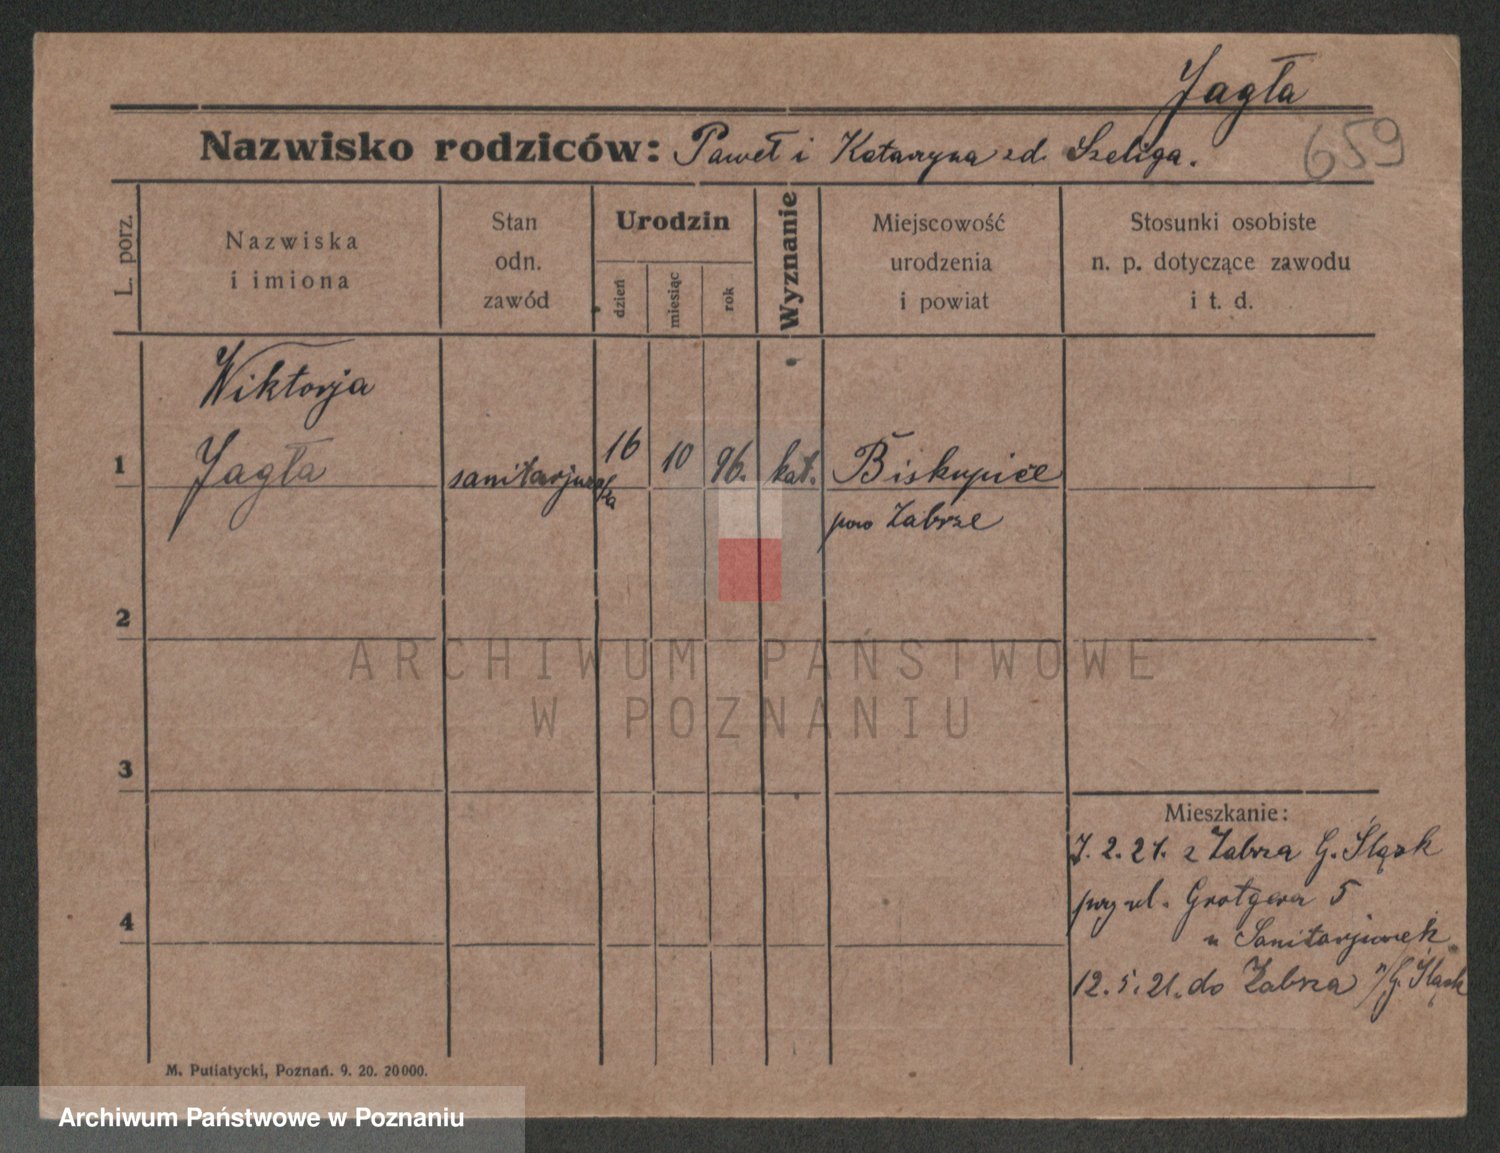 Jagła
Nazwisko rodziców: Paweł i Katarzyna zd. Szeliga.
659
L. porz.
Nazwiska
i imiona
Stan
odn.
zawód
Urodzin
dzień
miesiąc
rok
Wyznanie
Miejscowość
urodzenia
i powiat
Stosunki osobiste
n. p. dotyczące zawodu
i t. d.
Wiktorja
1 Jagła sanitarjuszka 16 10 96. kat. Biskupice
pow Zabrze
2
ARCHIWUM PAŃSTWOWE
W POZNANIU
3
Mieszkanie:
7. 2. 21. z Zabrza G. Śląsk
przy ul. Grotgera 5
u Sanitarjuszek
4
12. 5. 21. do Zabrza n/G. Śląsk
M. Putiatycki, Poznań. 9. 20. 20000.
Archiwum Państwowe w Poznaniu